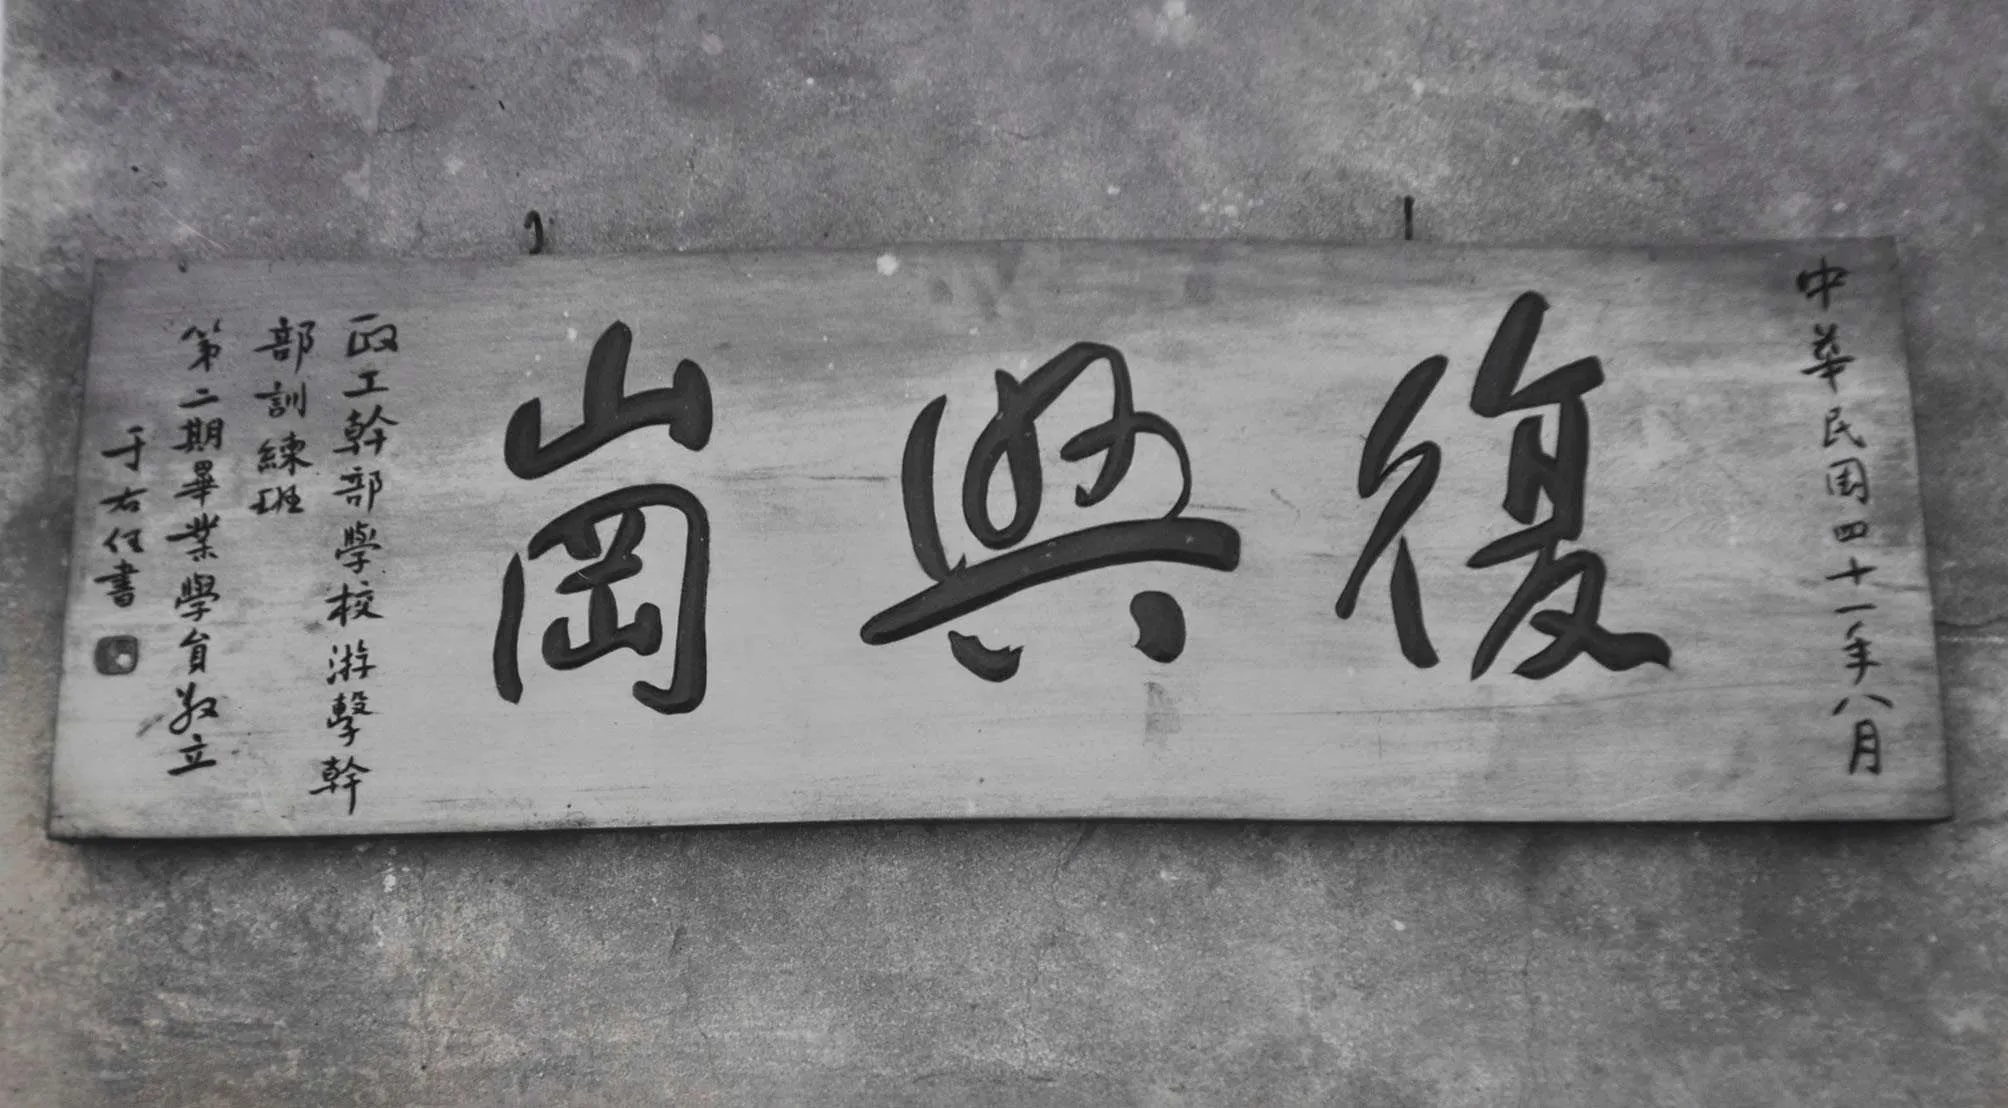 中華民国四十一年八月
復興崗
政工幹部學校游擊幹
部訓練班
第二期畢業學員敬立
于右任書